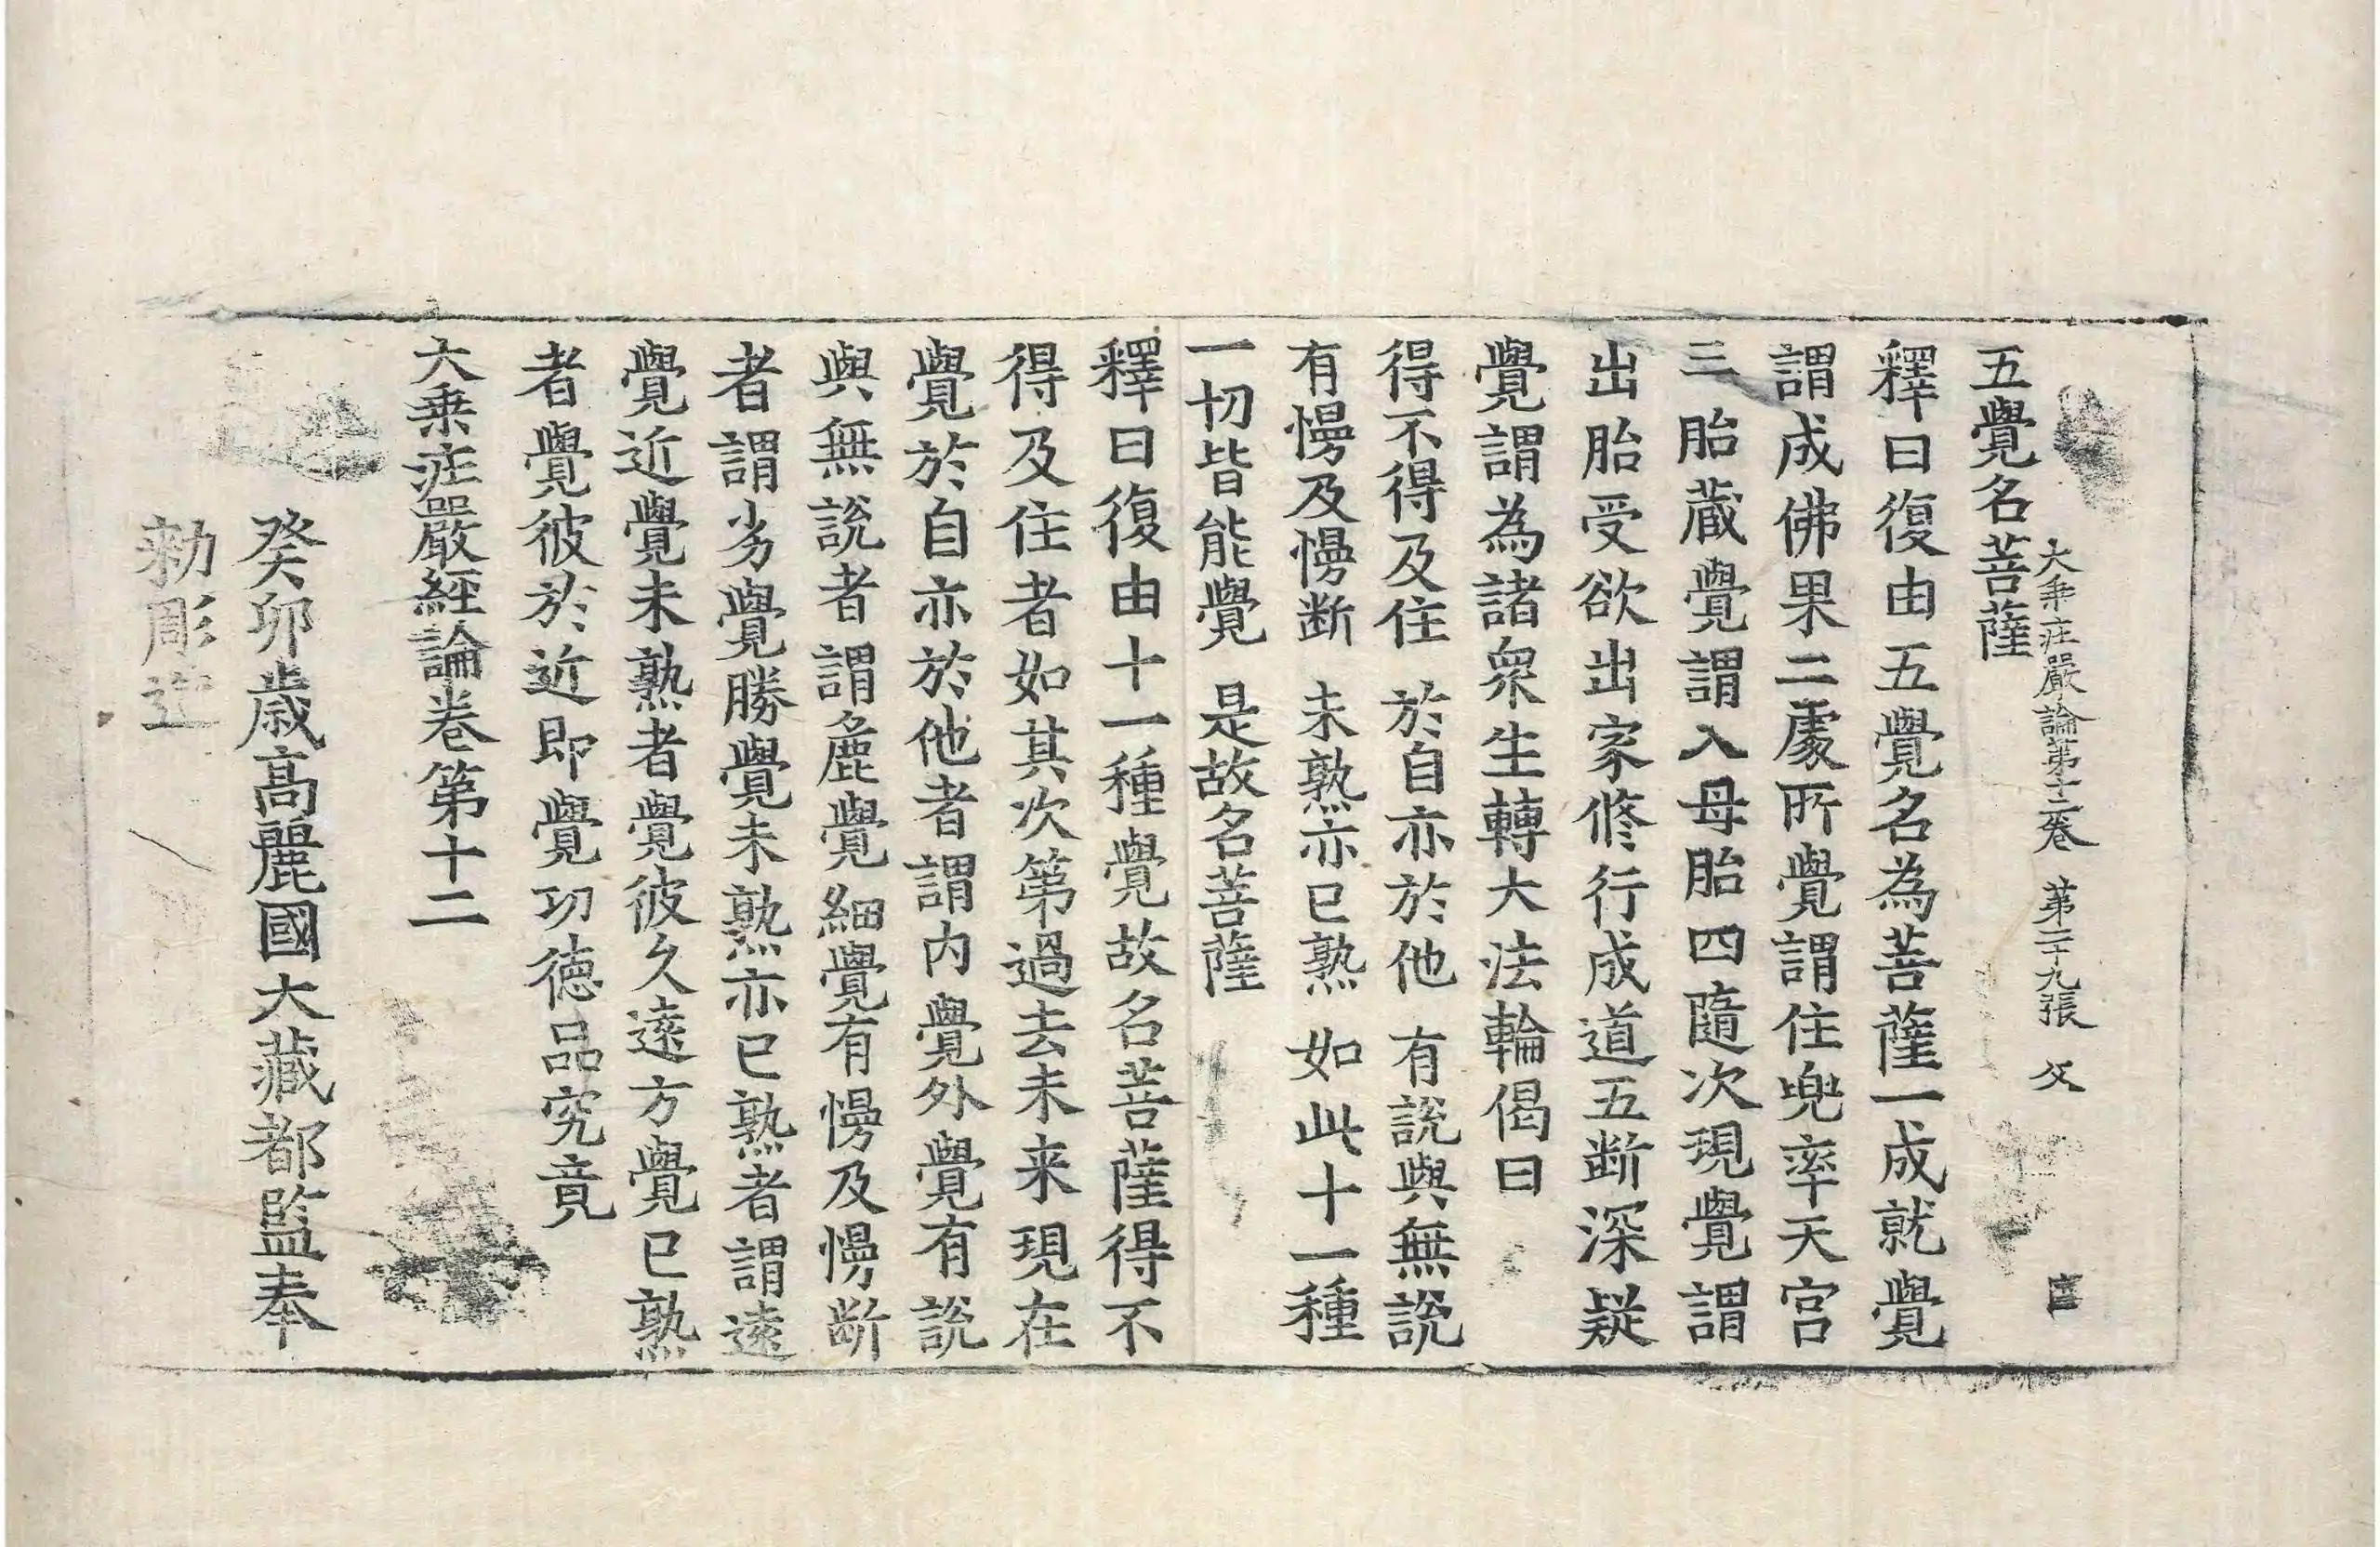 大乘庄嚴論第十二卷 第二十九張 父
五覺名菩薩
釋曰復由五覺名為菩薩一成就覺
謂成佛果二處所覺謂住兜率天宮
三胎蔵覺謂入母胎四隨次現覺謂
出胎受欲出家修行成道五断深疑
覺謂為諸衆生轉大法輪偈曰
得不得及住 於自亦於他 有說與無說
有慢及慢断 未熟亦已熟 如此十一種
一切皆能覺 是故名菩薩
釋曰復由十一種覺故名菩薩得不
得及住者如其次第過去未来現在
覺於自亦於他者謂内覺外覺有說
與無說者謂麁覺細覺有慢及慢断
者謂劣覺勝覺未熟亦已熟者謂遠
覺近覺未熟者覺彼久遠方覺已熟
者覺彼於近即覺功徳品究竟
大乘庄嚴經論卷第十二
癸卯歳高麗國大藏都監奉
勑彫造